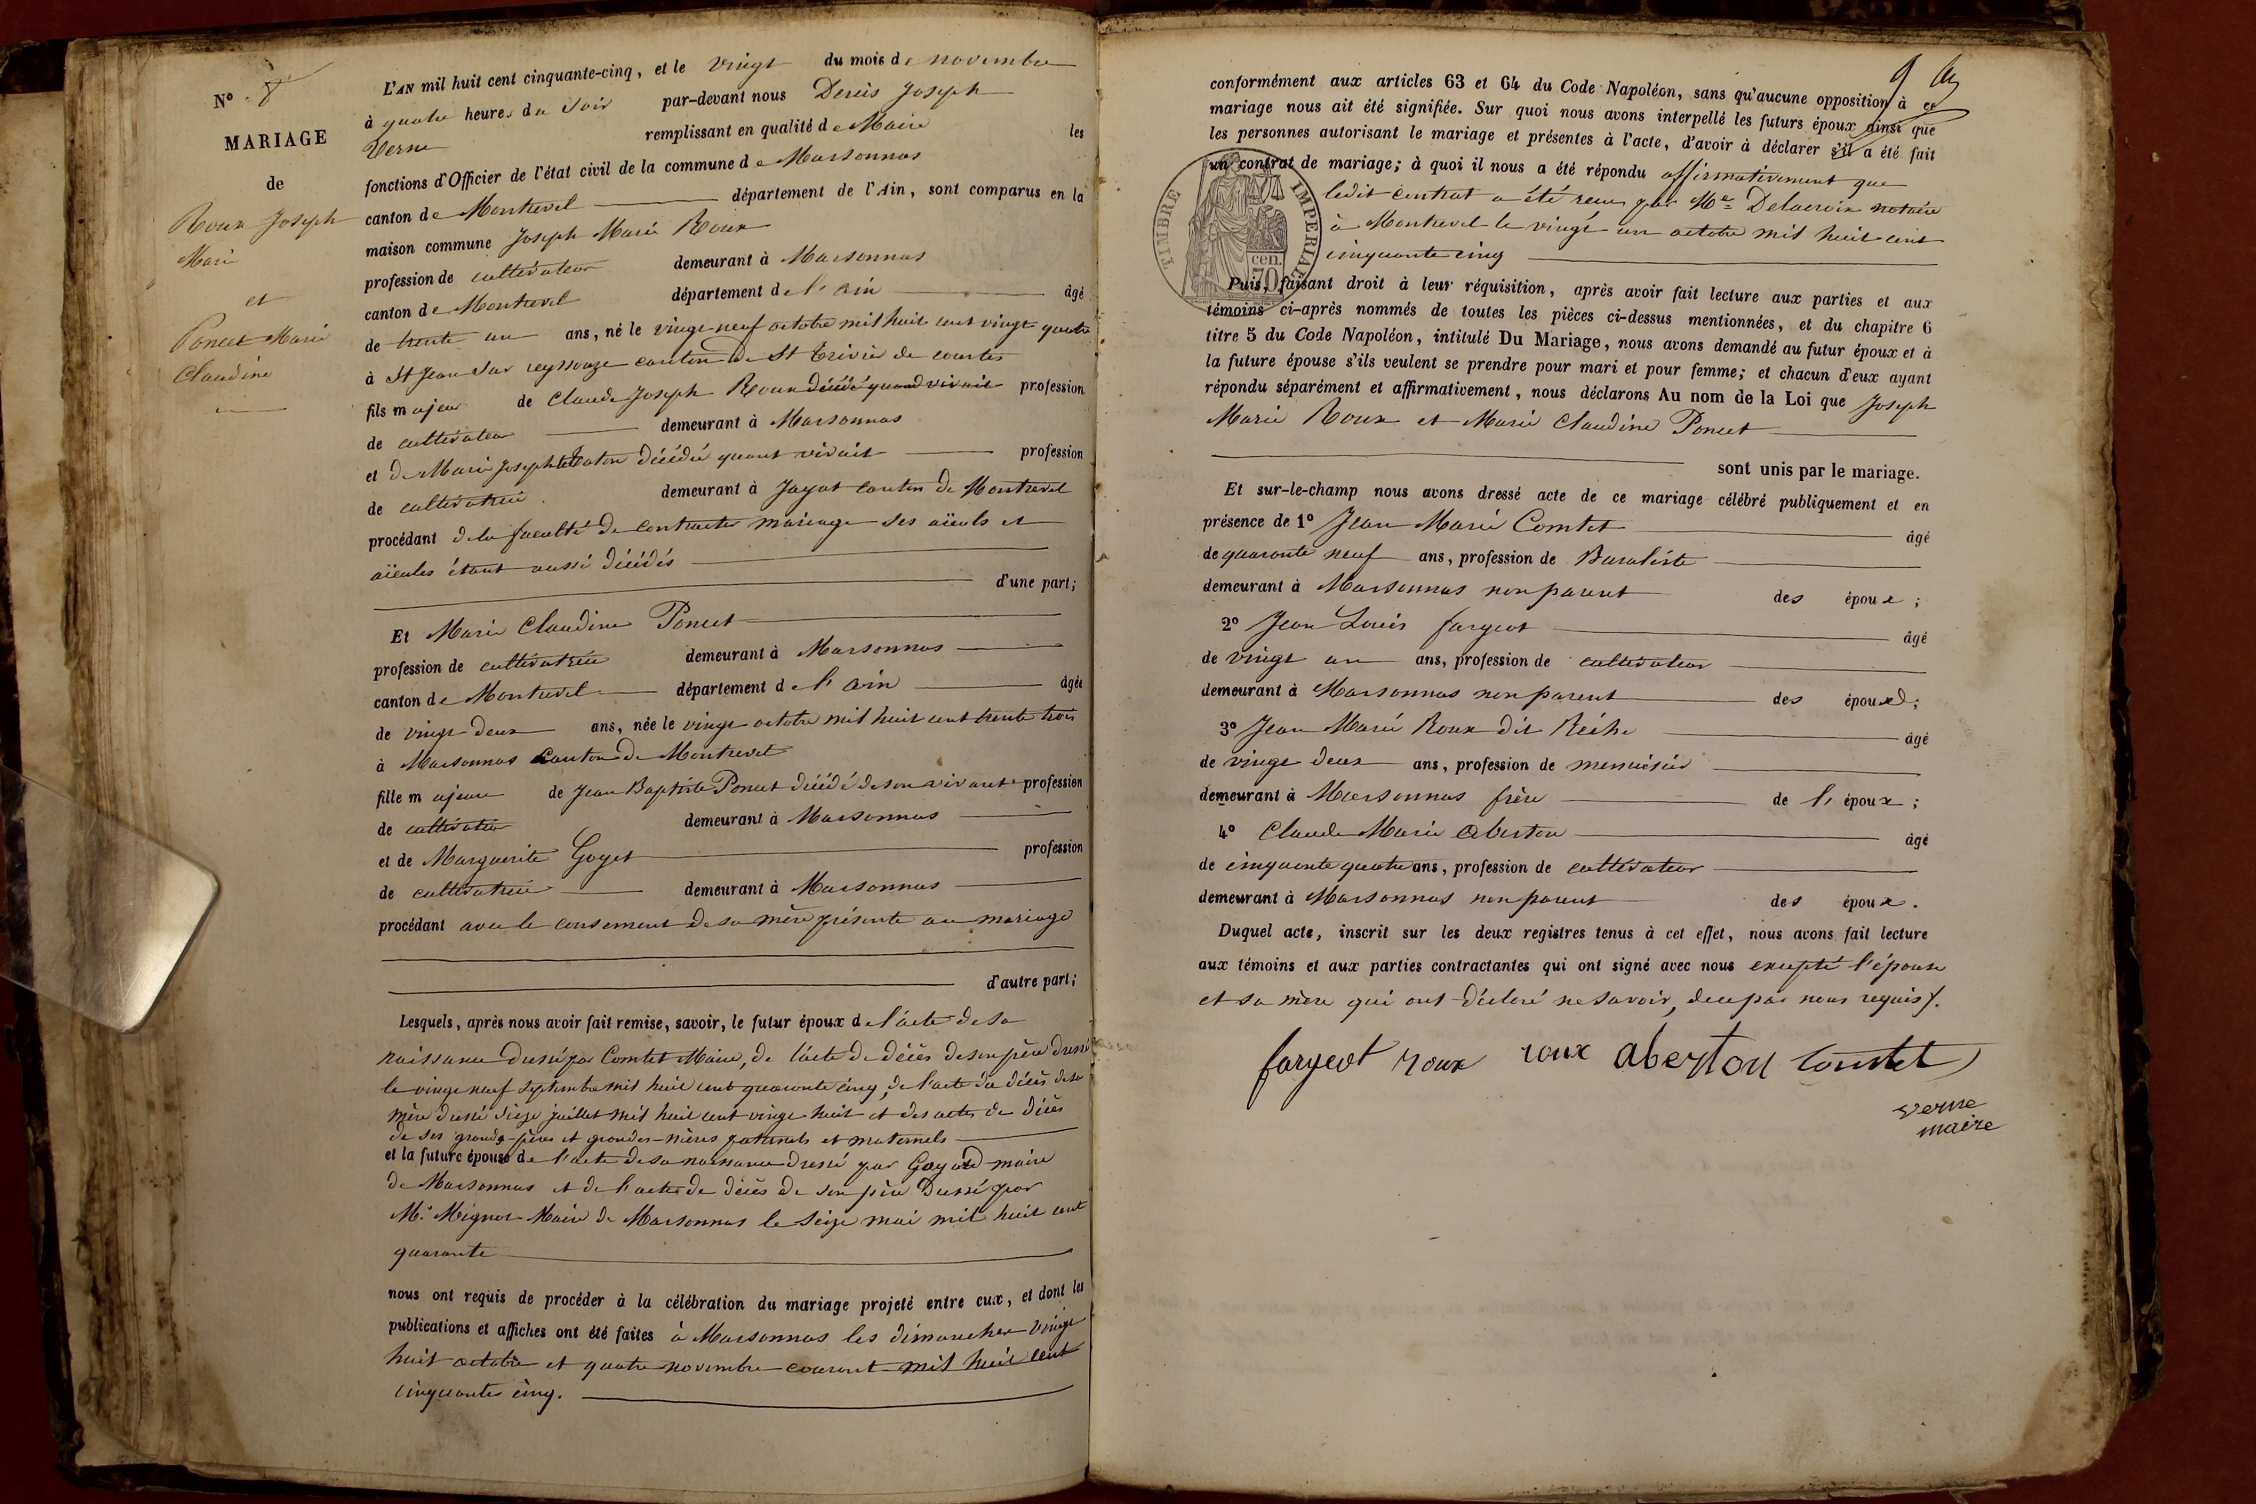 N° 8
MARIAGE
de
Roux Joseph
Marie
et
Poncet Marie
Claudine
L'AN mil huit cent cinquante-cinq, et le vingt du mois de novembre
à quatre heures du soir par-devant nous Denis Joseph
Verne remplissant en qualité de Maire les
fonctions d'Officier de l'état civil de la commune de Marsonnas
canton de Montrevel département de l'Ain, sont comparus en la
maison commune Joseph Marie Roux
profession de cultivateur demeurant à Marsonnas
canton de Montrevel département de l'ain âgé
de trente un ans, né le vingt-neuf octobre mil huit cent vingt quatre
à St Jean sur reyssouze canton de St Trivier de courtes
fils majeur de Claude Joseph Roux décédé quand vivait profession
de cultivateur demeurant à Marsonnas
et de Marie Josephte décédée quant vivait profession
de cultivatrice demeurant à Jayat canton de Montrevel
procédant de la faculté de contracter mariage ses aïeuls et
aïeules étant aussi décédés
d'une part;
Et Marie Claudine Poncet
profession de cultivatrice demeurant à Marsonnas
canton de Montrevel département de l'ain âgée
de vingt deux ans, née le vingt octobre mil huit cent trente trois
à Marsonnas Canton de Montrevel
fille majeure de Jean Baptiste Poncet décédé de son vivant profession
de cultivateur demeurant à Marsonnas
et de Marguerite Goyet profession
de cultivatrice demeurant à Marsonnas
procédant avec le consement de sa mère présente au mariage
d'autre part;
Lesquels, après nous avoir fait remise, savoir, le futur époux de l'acte de sa
naissance dressé par Comtet Maire, de l'acte de décès de son père dressé
le vingt neuf septembre mil huit cent quarante cinq, de l'acte du décès de sa
mère dressé seize juillet mil huit cent vingt huit et des actes de décès
de ses grands-pères et grandes-mères paternels et maternels
et la future épouse de l'acte de sa naissance dressé par Goyard maire
de Marsonnas et de l'acte de décès de son père Dressé par
Mr Mignot Maire de Marsonnas le seize mai mil huit cent
quarante
nous ont requis de procéder à la célébration du mariage projeté entre eux, et dont les
publications et affiches ont été faites à Marsonnas les dimanches vingt
huit octobre et quatre novembre courant mil huit cent
cinquante cinq.
9
conformément aux articles 63 et 64 du Code Napoléon, sans qu'aucune opposition à ce
mariage nous ait été signifiée. Sur quoi nous avons interpellé les futurs époux ainsi que
les personnes autorisant le mariage et présentes à l'acte, d'avoir à déclarer s'il a été fait
un contrat de mariage; à quoi il nous a été répondu affirmativement que
ledit contrat a été reçu par Me Delacroix notaire
à Montrevel le vingt un octobre mil huit cent
cinquante cinq
TIMBRE IMPERIAL
cen.
70
Puis, faisant droit à leur réquisition, après avoir fait lecture aux parties et aux
témoins ci-après nommés de toutes les pièces ci-dessus mentionnées, et du chapitre 6
titre 5 du Code Napoléon, intitulé Du Mariage, nous avons demandé au futur époux et à
la future épouse s'ils veulent se prendre pour mari et pour femme; et chacun d'eux ayant
répondu séparément et affirmativement, nous déclarons Au nom de la Loi que Joseph
Marie Roux et Marie Claudine Poncet
sont unis par le mariage.
Et sur-le-champ nous avons dressé acte de ce mariage célébré publiquement et en
présence de 1° Jean Marie Comtet âgé
de quarante neuf ans, profession de Buraliste
demeurant à Marsonnas non parent des époux;
2° Jean Louis fargeot âgé
de vingt un ans, profession de cultivateur
demeurant à Marsonnas non parent des époux;
3° Jean Marie Roux dit âgé
de vingt deux ans, profession de menuisier
demeurant à Marsonnas frère de l'époux;
4° Claude Marie Aberton âgé
de cinquante quatre ans, profession de cultivateur
demeurant à Marsonnas non parent des époux.
Duquel acte, inscrit sur les deux registres tenus à cet effet, nous avons fait lecture
aux témoins et aux parties contractantes qui ont signé avec nous excepté l'épouse
et sa mère qui ont déclaré ne savoir, de ce par nous requis.
fargeot roux roux aberton Comtet
Verne
maire